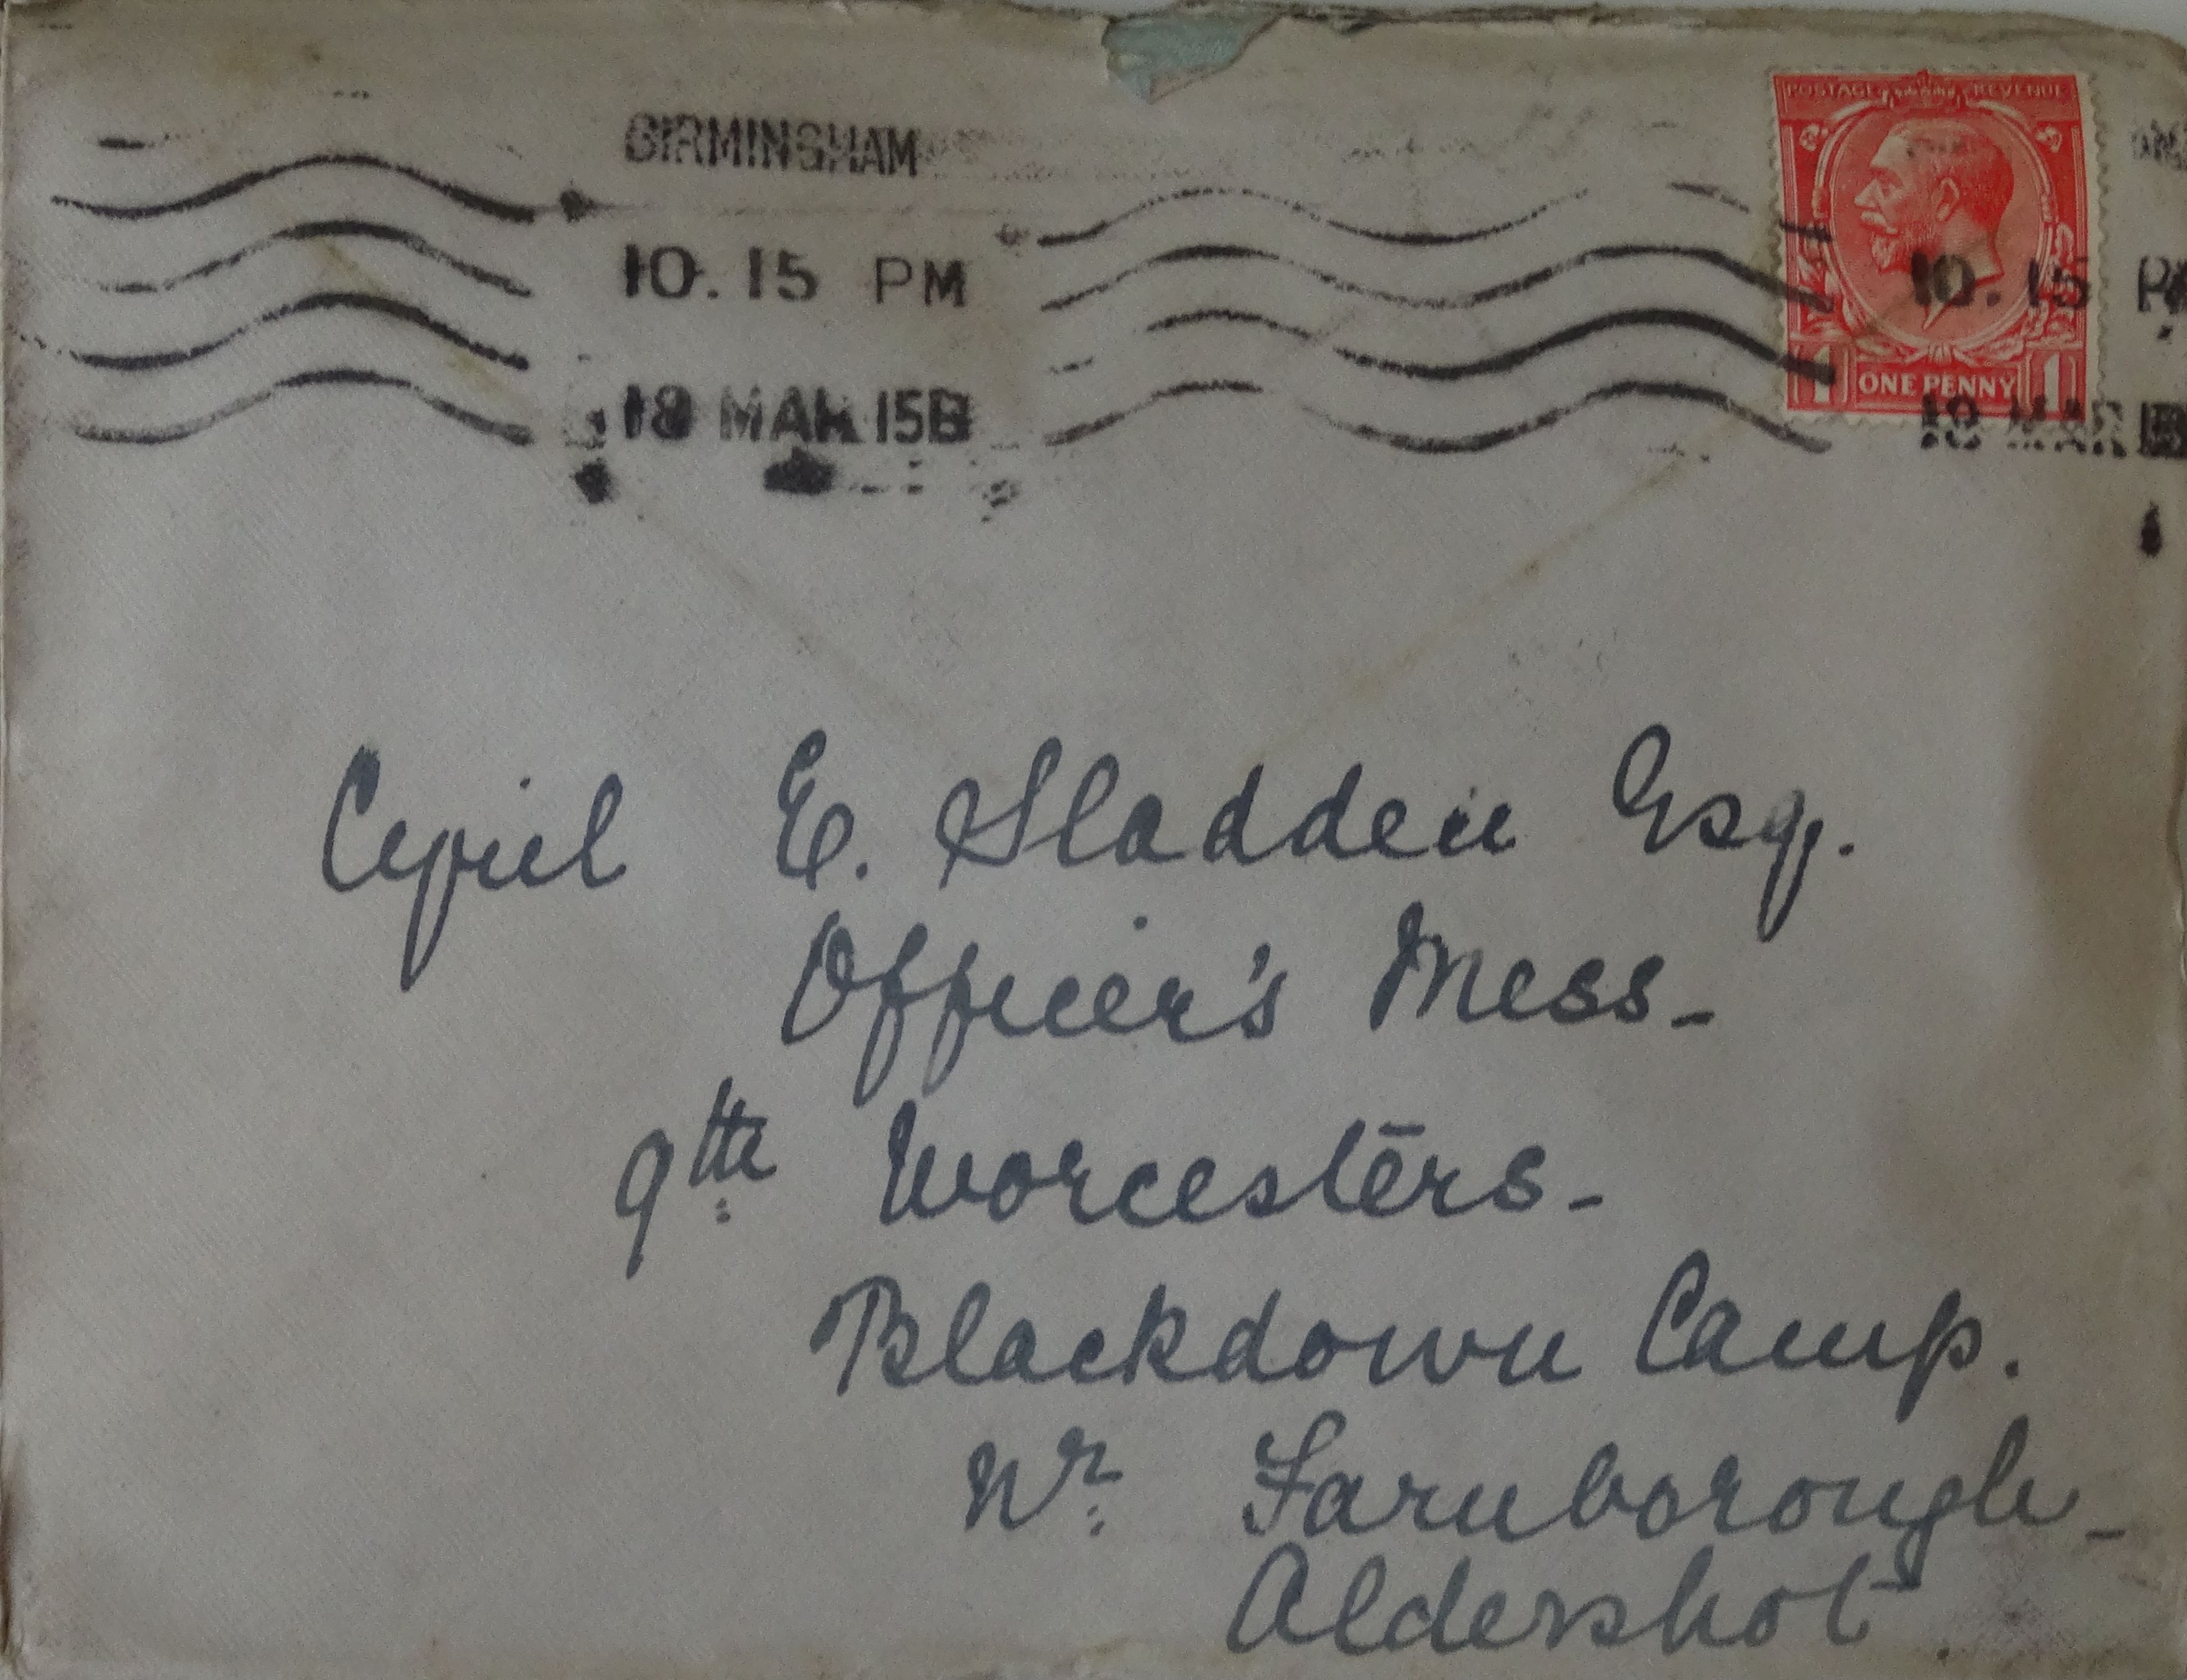 BIRMINGHAM
10.15 PM
18 MAR 15B
POSTAGE REVENUE
10.15 P
18 MAR
1 ONE PENNY 1
Cyril E. Sladden Esq.
Officer's Mess-
9th Worcesters-
Blackdown Camp.
Nr Farnborough-
Aldershot.